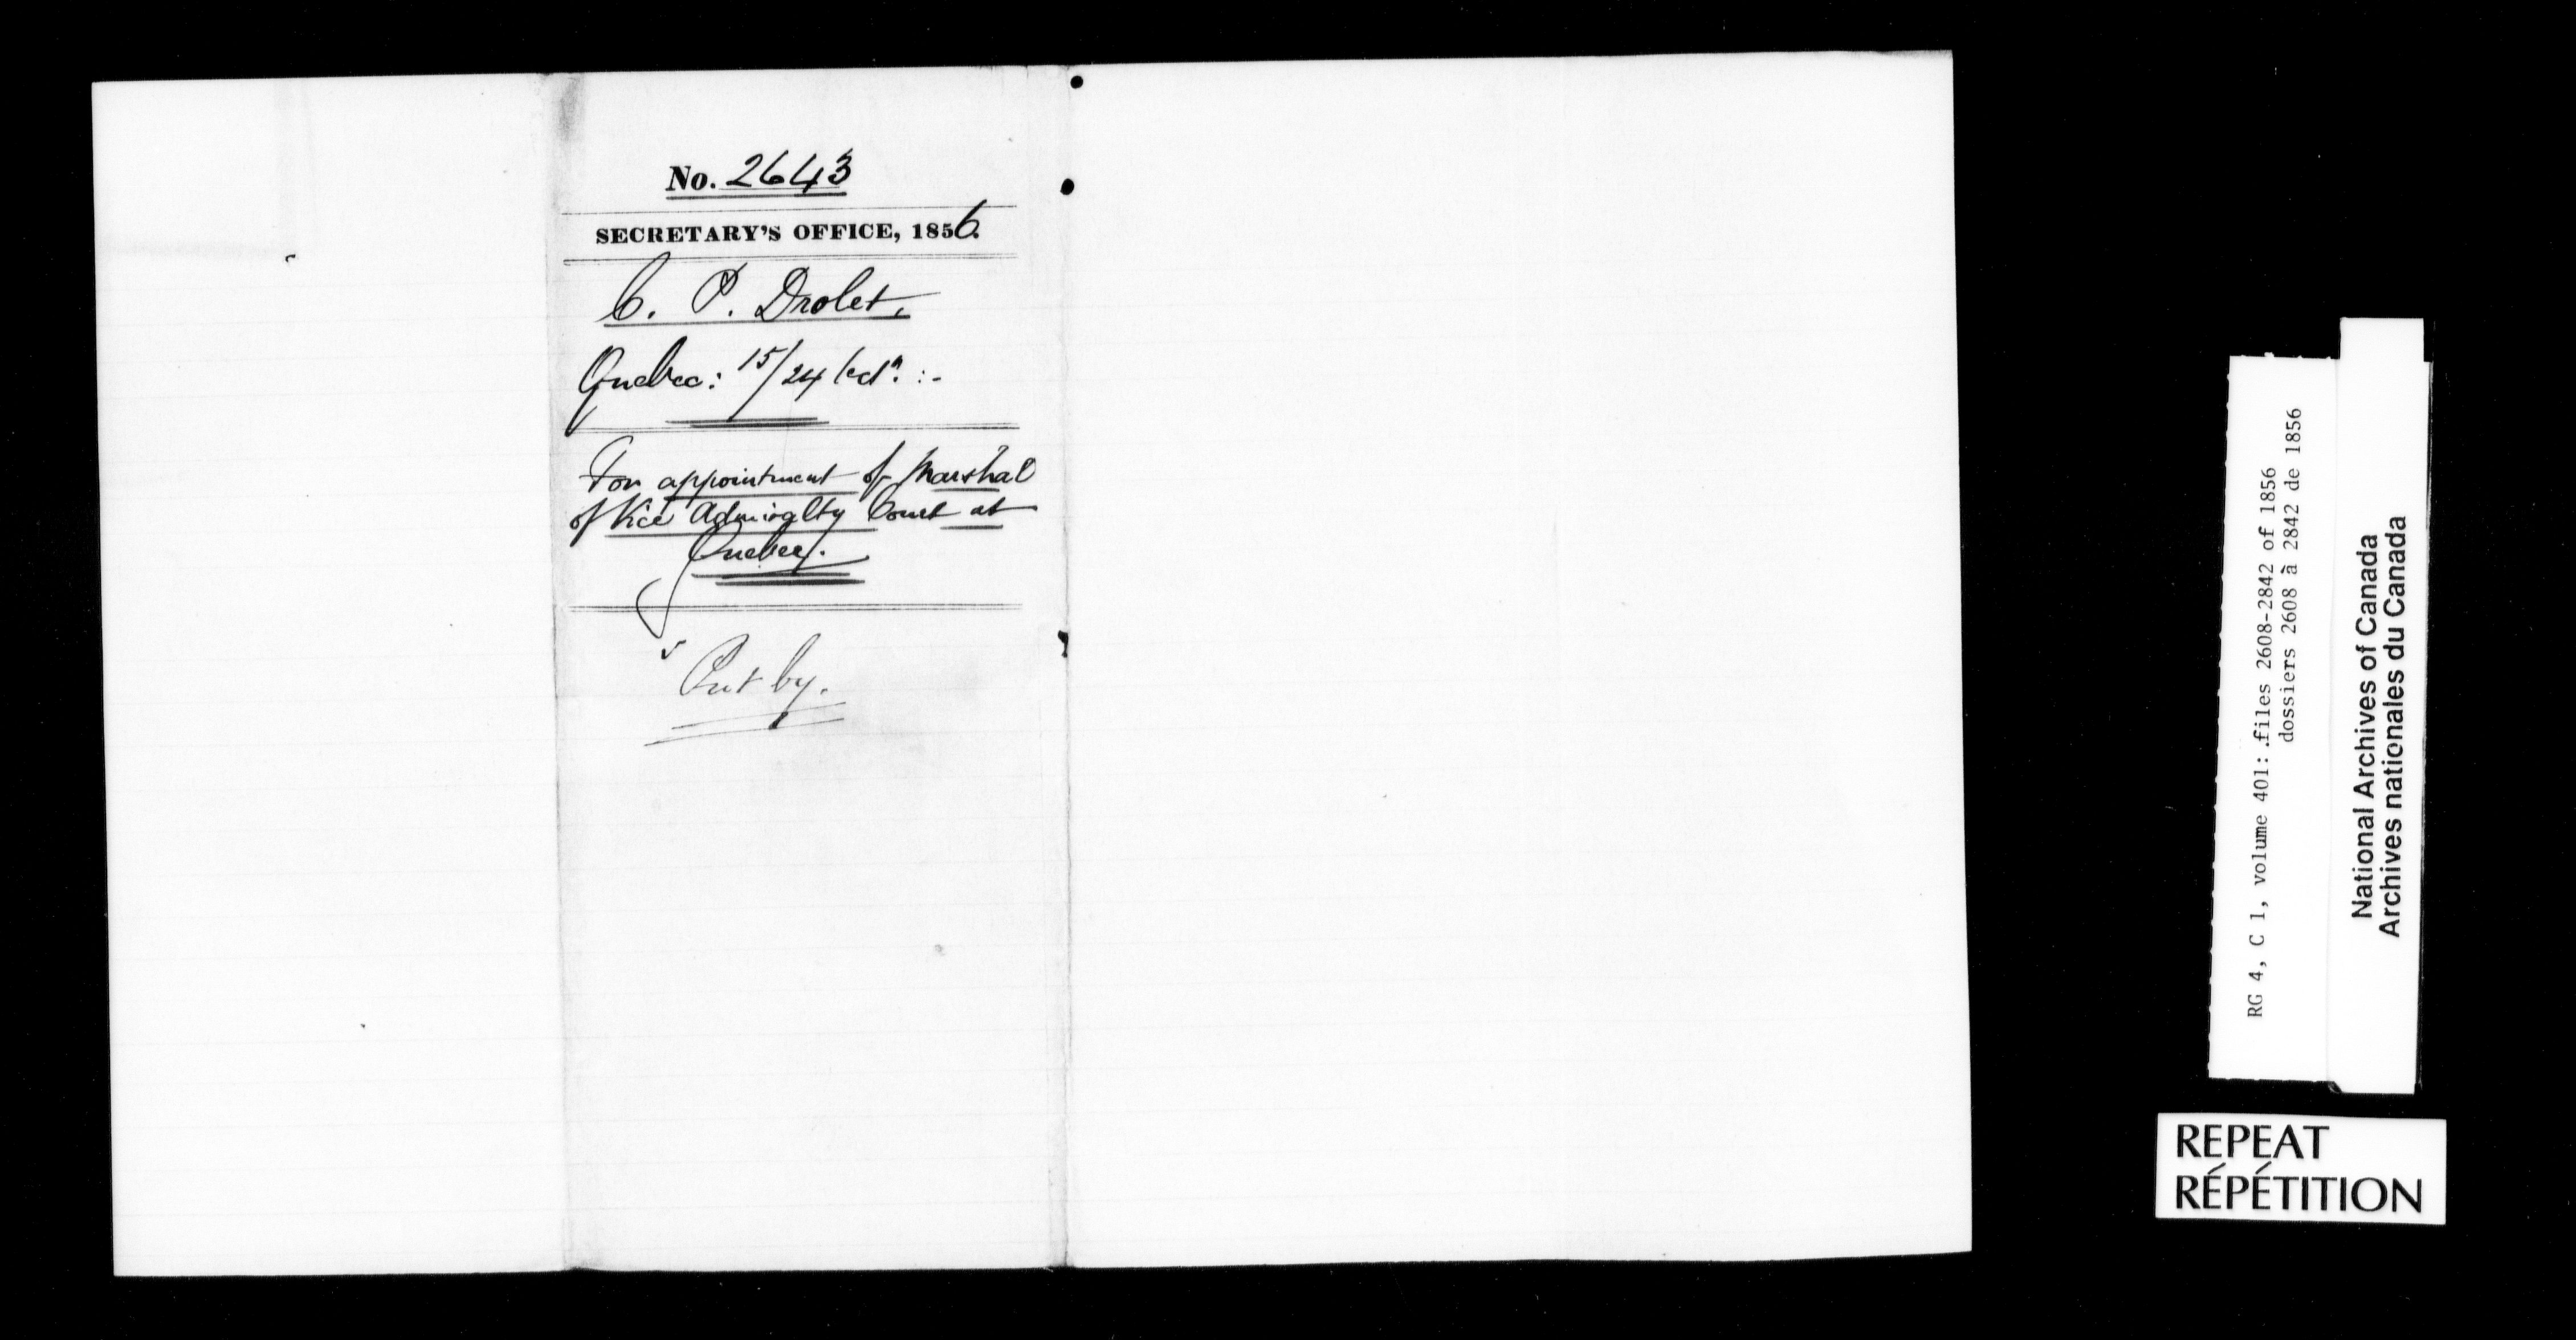 No. 2643
SECRETARY'S OFFICE, 1856.
C. P. Drolet.
Quebec: 15/24 Oct.r :-
For appointment of Marshal
of Vice Admiralty Court at
Quebec.
Put by.
RG 4, C 1, volume 401: files 2608-2842 of 1856
dossiers 2608 à 2842 de 1856
National Archives of Canada
Archives nationales du Canada
REPEAT
RÉPÉTITION